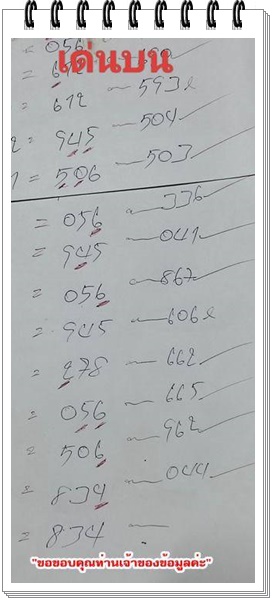 = 056
เด่นบน
= 612 — 593
= 945 — 504
1 = 506 — 503
= 056 — 336
= 945 — 041
= 056 — 867
= 945 — 606
= 278 — 662
= 056 — 665
= 506 — 962
= 834 — 044
= 834 —
"ขอขอบคุณท่านเจ้าของข้อมูลค่ะ"